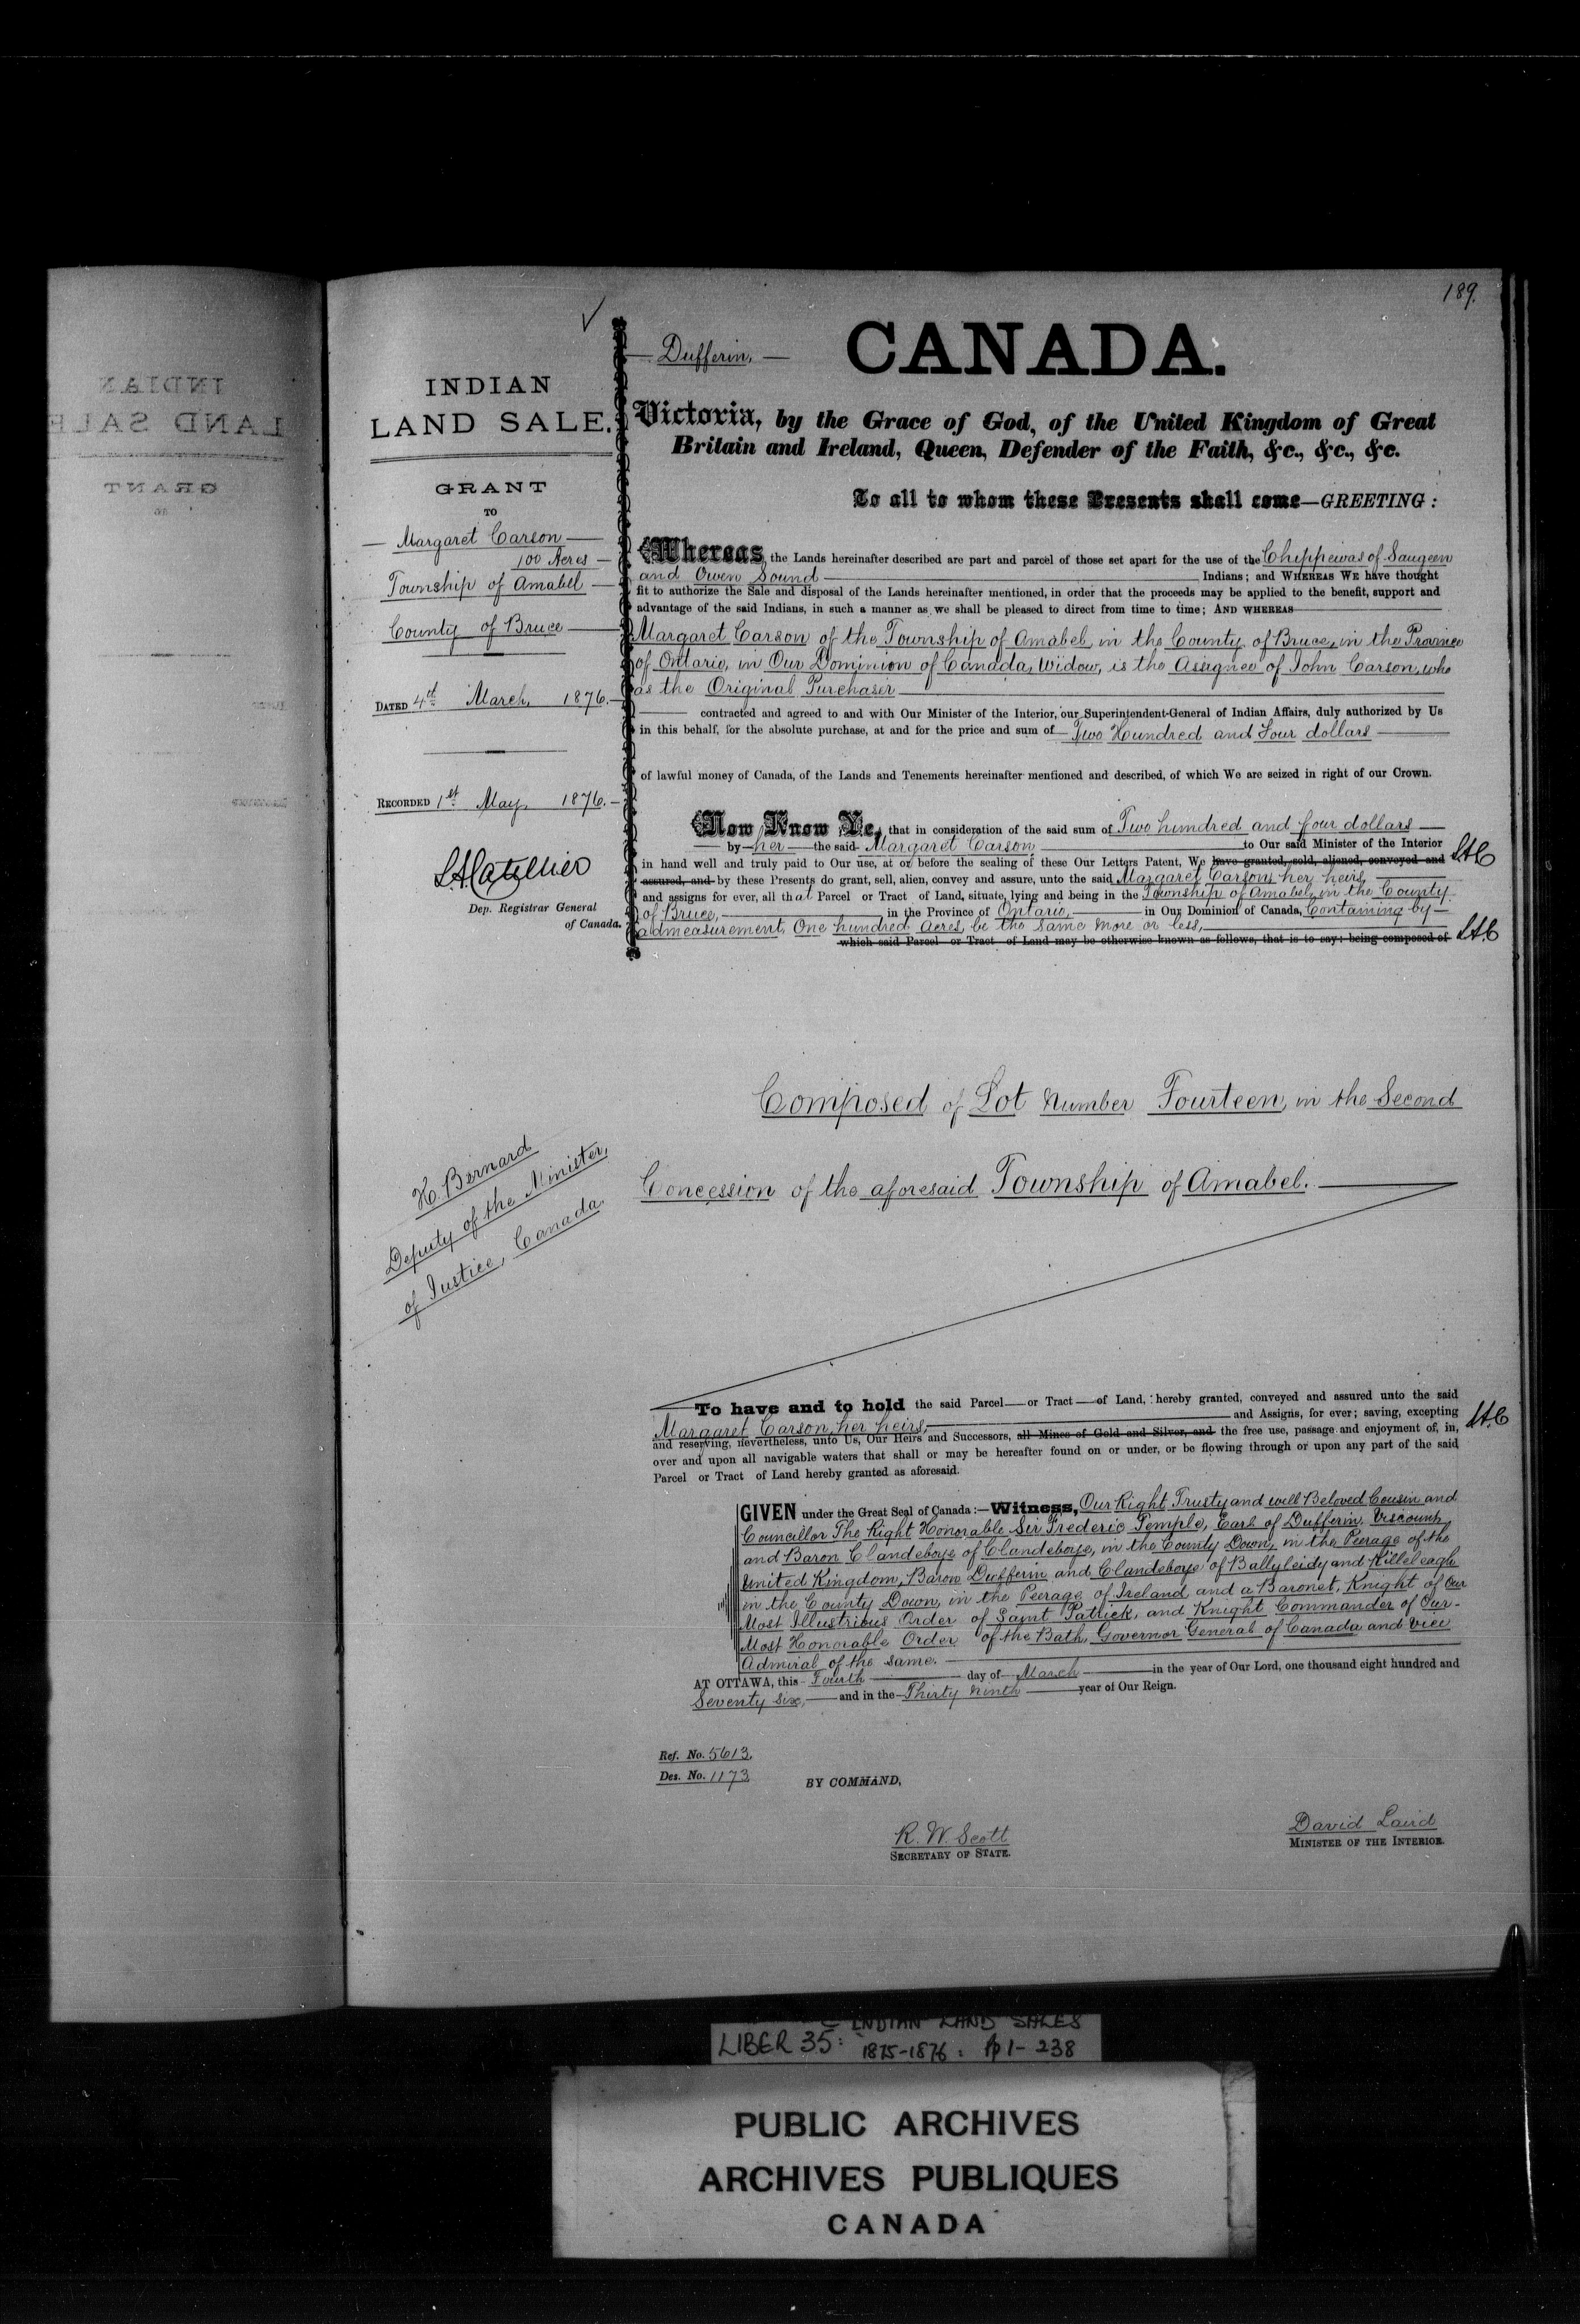 189.
INDIAN
LAND SALE.
GRANT
TO
Margaret Carson
100 Acres
Township of Amabel
County of Bruce
DATED 4th March, 1876.
RECORDED 1st May, 1876.
Dep. Registrar General
of Canada.
H. Bernard
Deputy of the Minister,
of Justice, Canada.
Dufferin,
CANADA.
Victoria, by the Grace of God, of the United Kingdom of Great
Britain and Ireland, Queen, Defender of the Faith, &c., &c., &c.
To all to whom these Presents shall come—GREETING:
Whereas, the Lands hereinafter described are part and parcel of those set apart for the use of the Chippewas of Saugeen
and Owen Sound Indians; and WHEREAS WE have thought
fit to authorize the Sale and disposal of the Lands hereinafter mentioned, in order that the proceeds may be applied to the benefit, support and
advantage of the said Indians, in such a manner as we shall be pleased to direct from time to time; AND WHEREAS
Margaret Carson of the Township of Amabel, in the County of Bruce, in the Province
of Ontario, in Our Dominion of Canada, Widow, is the Assignee of John Carson, who
as the Original Purchaser
contracted and agreed to and with Our Minister of the Interior, our Superintendent-General of Indian Affairs, duly authorized by Us
in this behalf, for the absolute purchase, at and for the price and sum of Two Hundred and Four dollars
of lawful money of Canada, of the Lands and Tenements hereinafter mentioned and described, of which We are seized in right of our Crown.
Now Know Ye, that in consideration of the said sum of Two hundred and four dollars
by her the said Margaret Carson to Our said Minister of the Interior
in hand well and truly paid to Our use, at or before the sealing of these Our Letters Patent, We have granted, sold, aliened, conveyed and
assured, and by these Presents do grant, sell, alien, convey and assure, unto the said Margaret Carson, her heirs,
and assigns for ever, all that Parcel or Tract of Land, situate, lying and being in the Township of Amabel, in the County
of Bruce, in the Province of Ontario, in Our Dominion of Canada, Containing by
admeasurement, One hundred Acres, be the same more or less,
which said Parcel or Tract of Land may be otherwise known as follows, that is to say: being composed of
Composed of Lot Number Fourteen, in the Second
Concession of the aforesaid Township of Amabel.
To have and to hold the said Parcel or Tract of Land, hereby granted, conveyed and assured unto the said
Margaret Carson, her heirs, and Assigns, for ever; saving, excepting
and reserving, nevertheless, unto Us, Our Heirs and Successors, all Mines of Gold and Silver, and the free use, passage and enjoyment of, in,
over and upon all navigable waters that shall or may be hereafter found on or under, or be flowing through or upon any part of the said
Parcel or Tract of Land hereby granted as aforesaid.
GIVEN under the Great Seal of Canada:—Witness, Our Right Trusty and well Beloved Cousin and
Councillor The Right Honorable Sir Frederic Temple, Earl of Dufferin, Viscount,
and Baron Clandeboye of Clandeboye, in the County Down, in the Peerage of the
United Kingdom, Baron Dufferin and Clandeboye of Ballyleidy and Killeleagh
in the County Down, in the Peerage of Ireland and a Baronet, Knight of Our
Most Illustrious Order of Saint Patrick, and Knight Commander of Our
Most Honorable Order of the Bath, Governor General of Canada and Vice
Admiral of the same.
AT OTTAWA, this Fourth day of March in the year of Our Lord, one thousand eight hundred and
Seventy Six, and in the Thirty Ninth year of Our Reign.
Ref. No. 5613.
Des. No. 1173
BY COMMAND,
R. W. Scott
SECRETARY OF STATE.
David Laird
MINISTER OF THE INTERIOR.
INDIAN LAND SALES
LIBER 35: 1875-1876: pp 1-238
PUBLIC ARCHIVES
ARCHIVES PUBLIQUES
CANADA